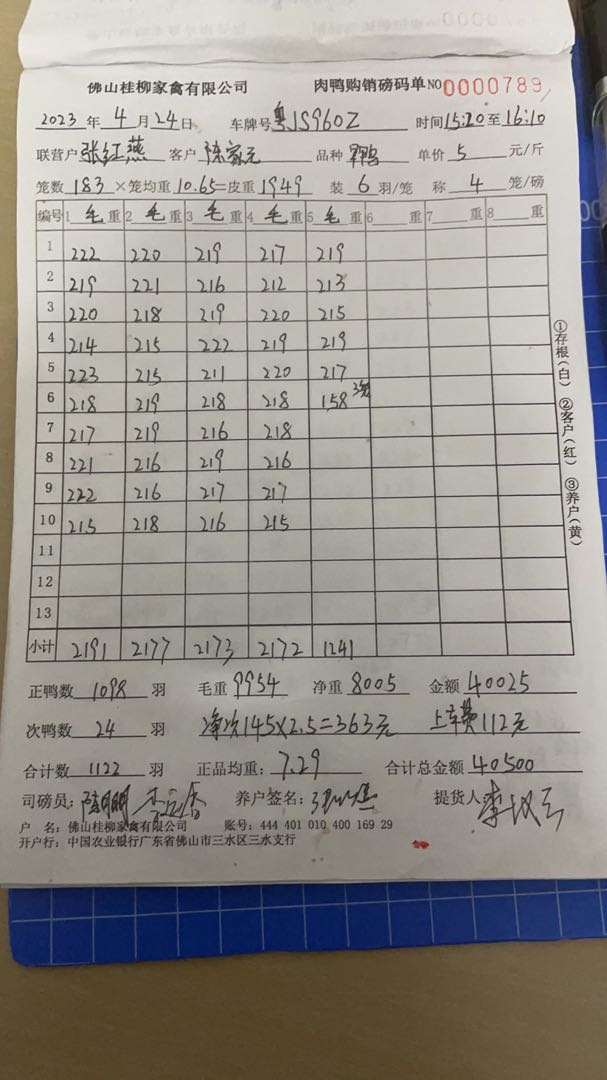 佛山桂柳家禽有限公司 肉鸭购销磅码单 NO 0000789
2023年4月24日 车牌号 粤JS960Z 时间15:20至16:10
联营户 张红燕 客户 陈家元 品种 鸭 单价 5 元/斤
笼数 183 ×笼均重 10.65=皮重 1949 装 6 羽/笼 称 4 笼/磅
编号 1 毛 重 2 毛 重 3 毛 重 4 毛 重 5 毛 重 6 重 7 重 8 重
1 222 220 219 217 219
2 219 221 216 212 213
3 220 218 219 220 215
4 214 215 222 219 219
5 223 215 211 220 217
6 218 219 218 218 158 3笼
7 217 219 216 218
8 221 216 219 216
9 222 216 217 217
10 215 218 216 215
11
12
13
小计 2191 2177 2173 2172 1241
①存根(白) ②客户(红) ③养户(黄)
正鸭数 1098 羽 毛重 9954 净重 8005 金额 40025
次鸭数 24 羽 净次145×2.5=363元 上车费112元
合计数 1122 羽 正品均重: 7.29 合计总金额 40500
司磅员: 养户签名: 提货人
户 名: 佛山桂柳家禽有限公司 账号: 444 401 010 400 169 29
开户行: 中国农业银行广东省佛山市三水区三水支行